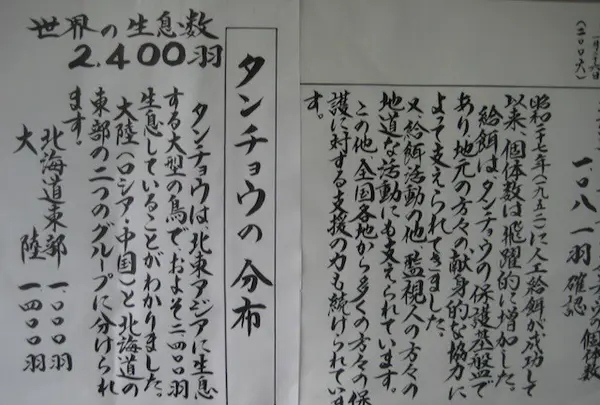 (二〇〇六)
ウの個体数
一・〇八一羽確認
昭和二七年(一九五二)に人工給餌が成功して
以来、個体数は飛躍的に増加した。
給餌は、タンチョウの保護基盤で
あり、地元の方々の献身的な協力に
よって支えられてきました。
又、給餌活動の他、監視人の方々の
地道な活動にも支えられています。
この他、全国各地から多くの方々の保
護に対する支援の力も続けられていま
す。
タンチョウの分布
世界の生息数
2.400羽
タンチョウは、北東アジアに生息
する大型の鳥で、およそ二四〇〇羽
生息していることがわかりました。
大陸(ロシア・中国)と北海道の
東部の二つのグループに分けられ
ます。
北海道東部 一〇〇〇羽
大陸 一四〇〇羽